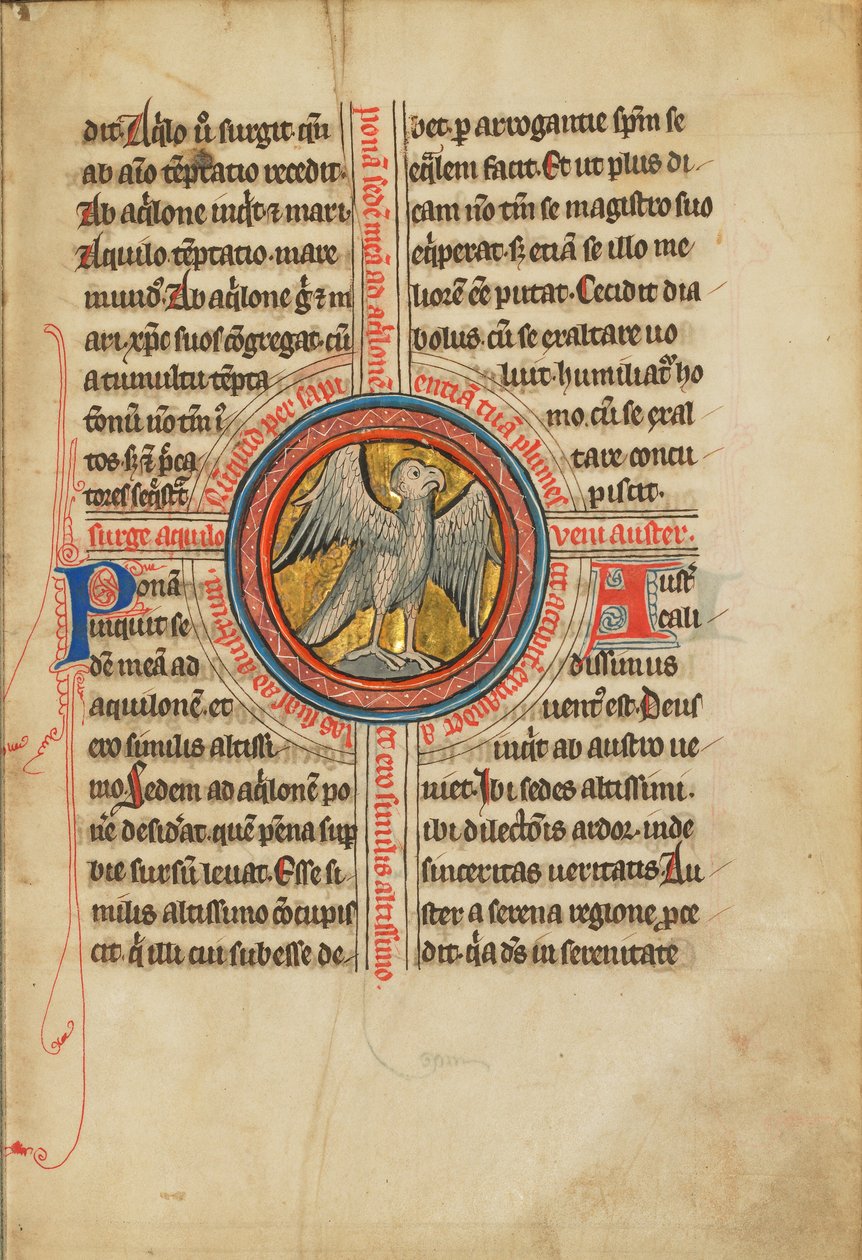 dit. Aq̃lo u̾ surgit. cũ
ab aĩo tẽptatio recedit.
Ab aq̃lone inq̃t ⁊ mari.
Aquilo. tẽptatio. mare
mund᾽. Ab aq̃lone g̃ ⁊ m
ari. xp̃c suos cõgregat. cũ
a tumultu tẽpta
tionũ nõ tm̃ ı̃
tos. sꝫ ⁊ p̃ca
tores seq̃strat
ponã sedẽ meã ad aq̃lonẽ
bet. ꝑ arrogantie sp̃m se
eq̃lem facit. Et ut plus di
cam nõ tm̃ se magistro suo
eq̃perat. sꝫ etiã se illo me
liorẽ eẽ putat. Cecidit dia
bolus. cũ se exaltare uo
luit. humiliat᾽ ho
mo. cũ se exal
tare concu
piscit.
Nũquid per sapi
entiã tuã plumes
cit accipit᾽. expandet a
las suas ad austrum.
surge aquilo
veni auster.
Ponã
inquit se
dẽ meã ad
aquilonẽ. et
ero similis altissi
mo. Sedem ad aq̃lonẽ po
nẽ desid̾at. quẽ pẽna sup̱
bie sursũ leuat. Esse si
milis altissimo cõcupis
cit. q̃ illi cui subesse de
et ero similis altissimo.
Aust᾽
cali
dissimus
uent᾽ est. Deus
inq̃t ab austro ue
niet. Ibi sedes altissimi.
ibi dilectõis ardor. inde
sinceritas ueritatis. Au
ster a serena regione ꝓce
dit. q̃a dñs in serenitate